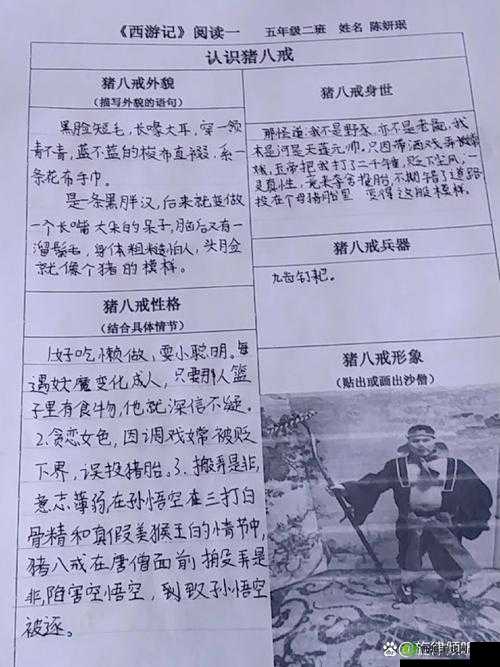 《西游记》阅读一 五年级二班 姓名 陈妍珉
认识猪八戒
猪八戒外貌
(描写外貌的语句)
黑脸短毛,长喙大耳,穿一领
青不青,蓝不蓝的梭布直裰,系一
条花布手巾。
是一条黑胖汉,后来就变做
一个长嘴大耳朵的呆子,脑后又有一
溜鬃毛,身体粗糙怕人,头脸
就像个猪的模样。
猪八戒性格
(结合具体情节)
1.好吃懒做,耍小聪明。每
遇妖魔变化成人,只要那人篮
子里有食物,他就深信不疑。
2.贪恋女色,因调戏嫦被贬
下界,误投猪胎。3.搬弄是非,
意志薄弱,在孙悟空在三打白
骨精和真假美猴王的情节中,
猪八戒在唐僧面前搬弄是
非,陷害空悟空,到致孙悟空
被逐。
猪八戒身世
那怪道:我不是野豕,亦不是老彘,我
本是河是天蓬元帅,只因带酒戏弄嫦
娥,玉帝把我打了二千锤,贬下尘凡,一
灵真性,竟来夺舍投胎,不期错了道路
投在个母猪胎里 变得这般模样。
猪八戒兵器
九齿钉耙。
猪八戒形象
(贴出或画出沙僧)